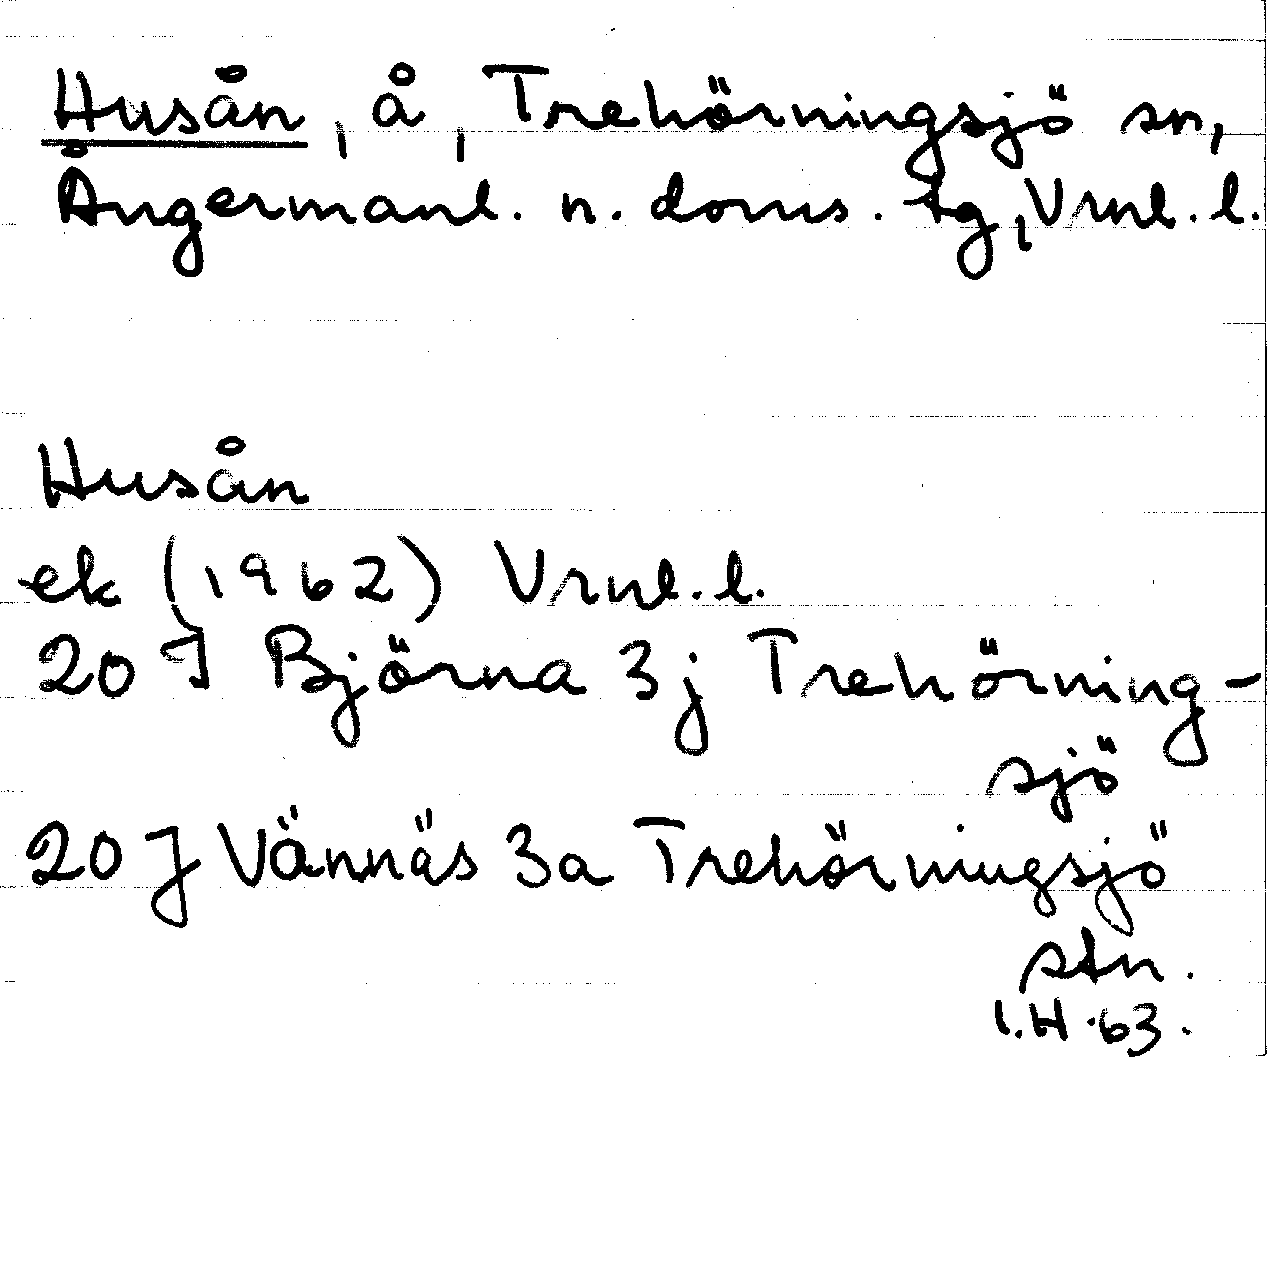 Husån, å, Trehörningsjö sn,
Ångermanl. n. doms. tg, Vrnl. l.
Husån
ek (1962) Vrnl. l.
20 I Björna 3j Trehörning-
sjö
20 J Vännäs 3a Trehörningsjö
stn.
I.H.63.